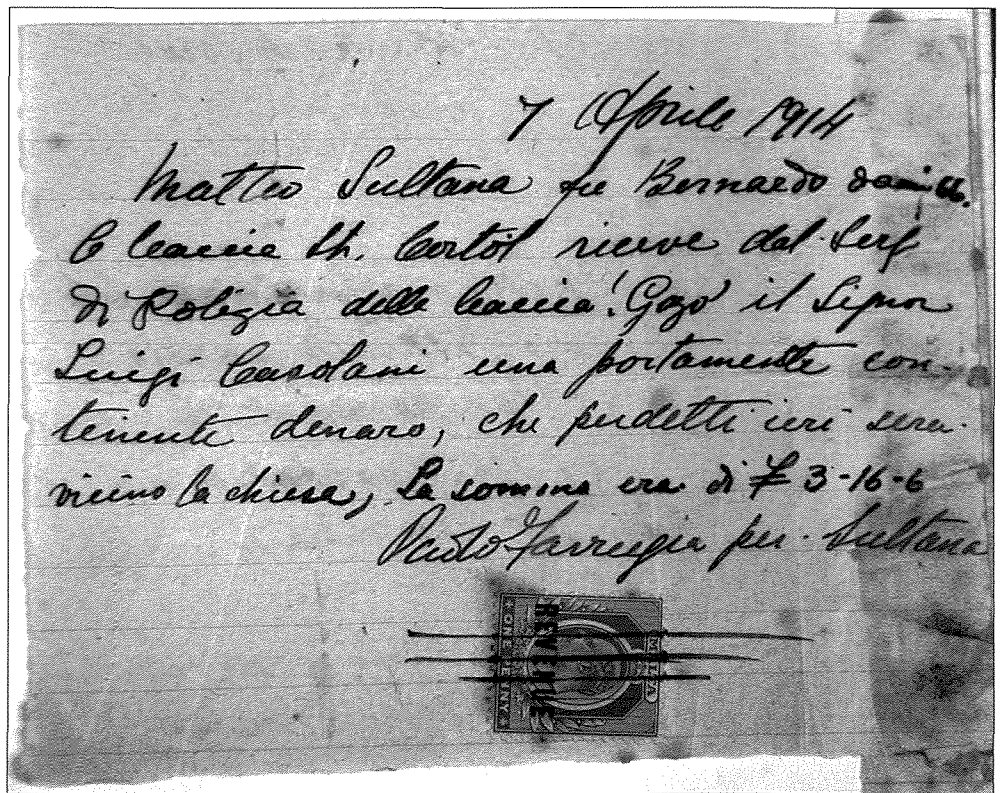 7 Aprile 1914
Matteo Sultana fu Bernardo
St. riceve dal Serg
di Polizia della Gozo il Signor
Luigi Casolani una portamente con-
tenente denaro, che perdetti ieri sera
vicino la chiesa, La somma era di £ 3-16-6
Paolo Farrugia per. Sultana
MALTA
REVENUE
ONE PENNY